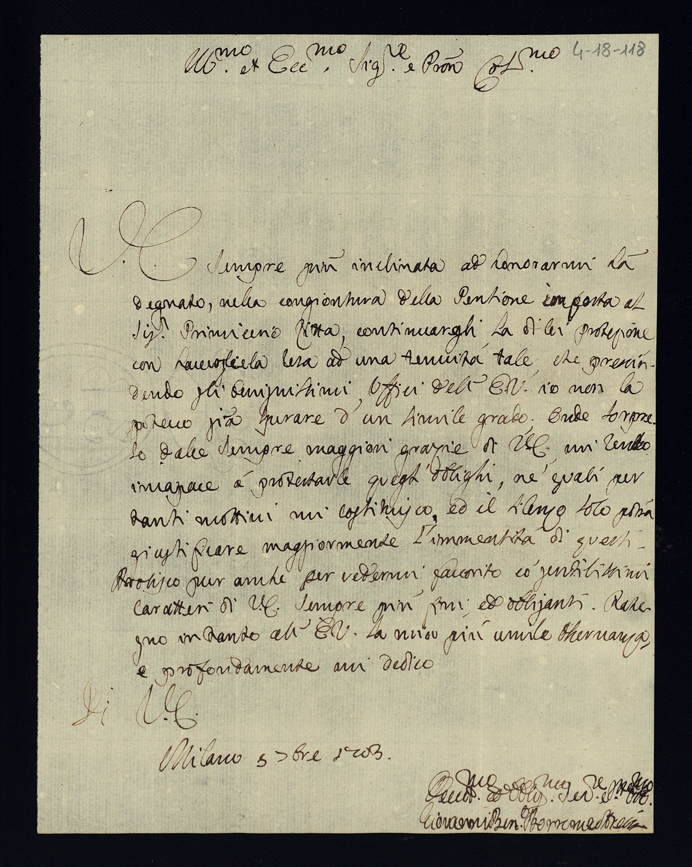 4-18-118
Ill.mo et Ecc.mo Sig.re e Pron Col.mo
V. E. sempre più inclinata ad honorarmi hà
degnato, nella congiontura della Pentione imposta al
Sig.r Primicerio Vitta, continuargli la di lei protezione
con haverliela lesa ad una tenuità tale, che prescin-
dendo gli benignissimi Offici dell' E.V. io non la
potevo già sperare d'un simile grado. Onde sorpre-
so dalle sempre maggiori grazie di V.E. mi rendo
incapace à protestarle quegl'oblighi, ne' quali per
tanti mottivi mi costituisco, ed il silenzo solo potrà
giustificare maggiormente l'immensità di questi.
pur anche per vedermi favorito co' gentilissimi
Caratteri di V.E. sempre più fini ed obliganti. Rasse-
gno in tanto all' E.V. la mia più umile osservanza,
e profondamente mi dedico
Di V.E.
Milano 5 7bre 1703.
Devot.mo ed Oblig.mo Ser.re
Giovanni Ben. Borromeo